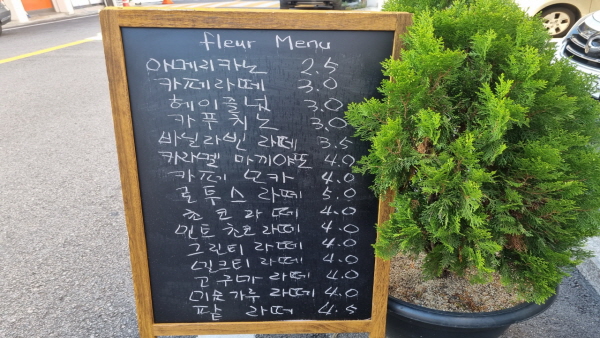 fleur Menu
아메리카노 2.5
카페라떼 3.0
헤이즐넛 3.0
카푸치노 3.0
바닐라빈 라떼 3.5
카라멜 마끼야또 4.0
카페 모카 4.0
로투스 라떼 5.0
초코라떼 4.0
민트초코라떼 4.0
그린티 라떼 4.0
밀크티 라떼 4.0
고구마 라떼 4.0
미숫가루 라떼 4.0
팥 라떼 4.5